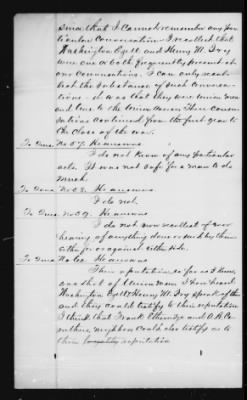 since that I cannot remember any par
ticular Conversation I recollect that
Washington Cyett and Henry M. Ivy
were one or both frequently present at
our conversations. I can only recol-
lect the substance of such conversa-
tions - it was that they were Union men
and true to the Union cause These Conver-
sations continued from the first year to
the close of the war.
To Ques No 57. He answers
I do not know of any particular
acts. It was not safe for a man to do
much.
To Ques No 58. He answers
I do not.
To Ques No 59. He answers
I do not now recollect of ever
hearing of anything done or said by them
either for or against either side.
To Ques No 60 He answers
Their reputation so far as I know,
was that of Union men I have heard
Washington Cyett & Henry M. Ivy speak of them
and they could testify to their reputation
I think that Frank Ethridge and A. B. Ca
ruthers, neighbors could also testify as to
their reputation